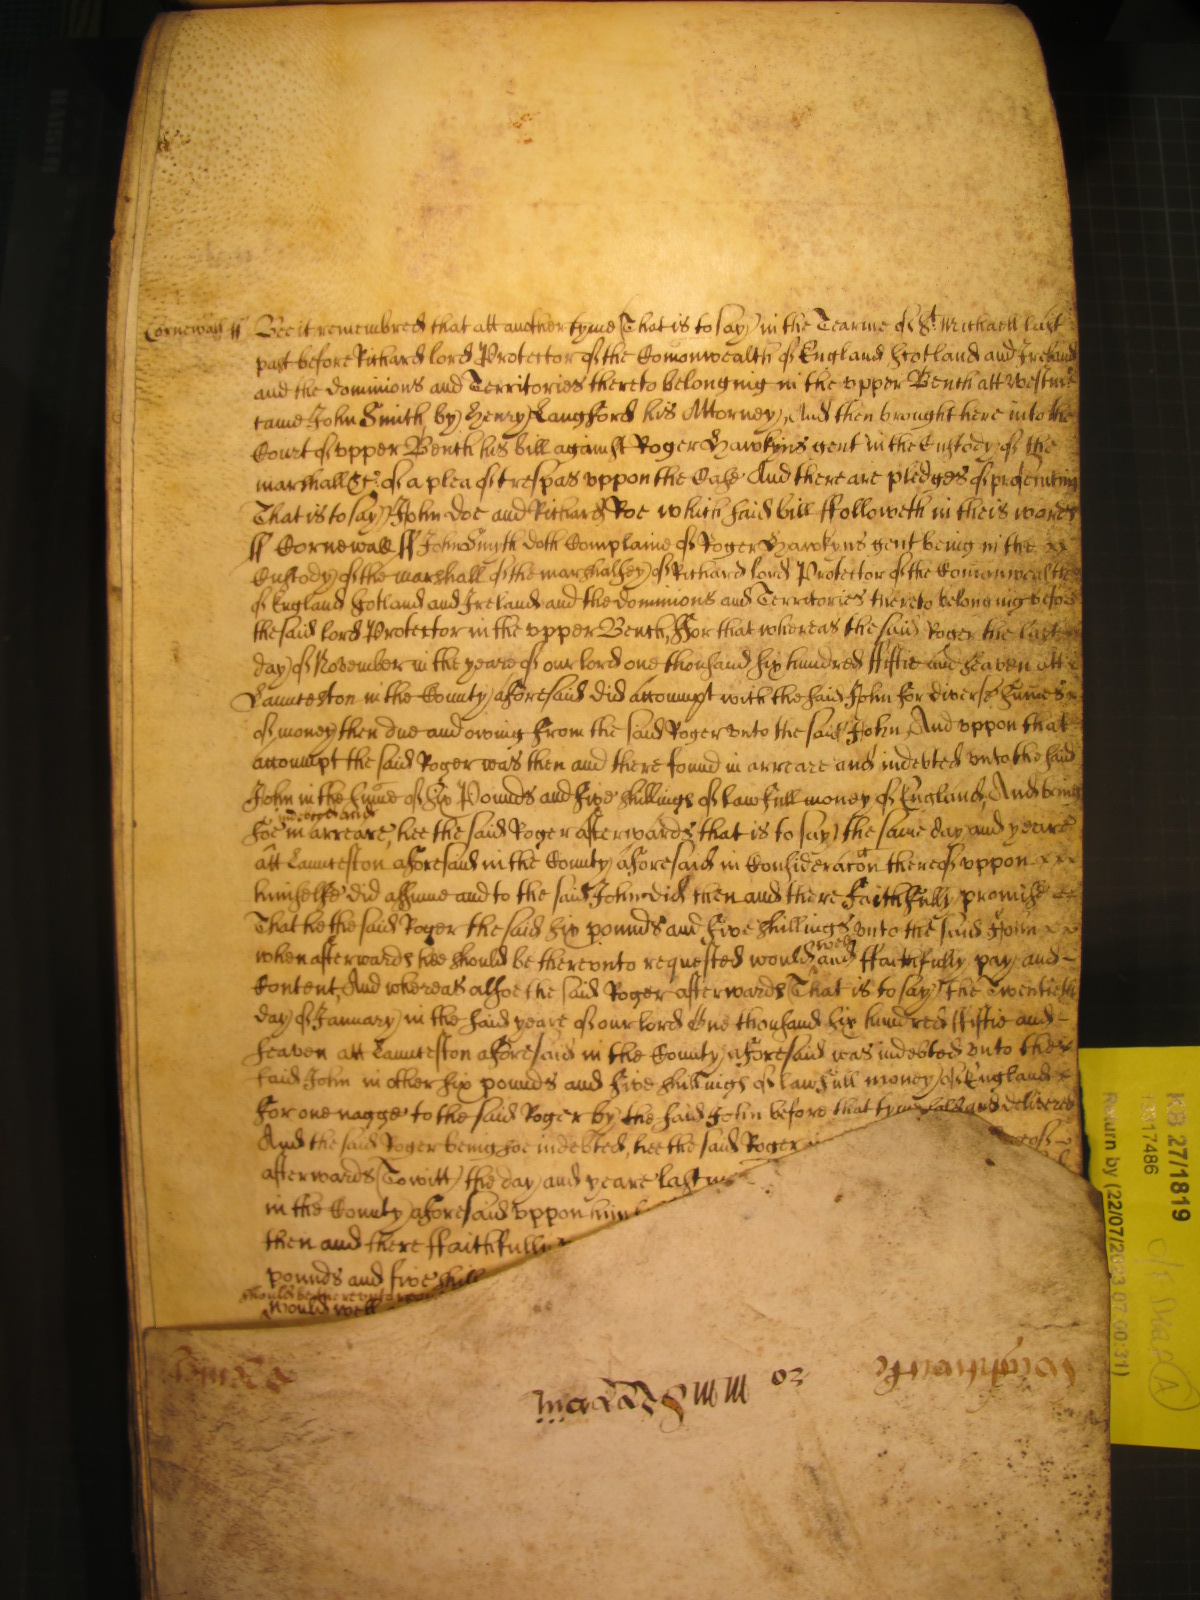 Cornewall ss Bee it remembred that att another tyme (That is to say) in the Tearme of St Michaell last
past before Richard lord Protector of the Comonwealth of England Scotland and Ireland
and the dominions and Territories thereto belonging in the upper Bench att Westmr
came John Smith by Henry Langford his Attorney, And then brought here into the
Court of upper Bench his bill against Roger Hawkyns gent in the Custody of the
marshall &c of a plea of trespas uppon the Case And there are pledges of prosecuting
That is to say John Doe and Richard Roe which said bill ffolloweth in theis words
ss Cornewall ss John Smyth doth Complaine of Roger Hawkyns gent being in the
Custody of the marshall of the marshalsey of Richard lord Protector of the Comonwealth
of England Scotland and Ireland and the dominions and Territories thereto belonging before
the said lord Protector in the upper Bench, For that whereas the said Roger the last
day of November in the yeare of our lord one thousand six hundred ffiftie and seaven att
Launceston in the County aforesaid did accompt with the said John for diverse summes
of money then due and owing from the said Roger unto the said John, And uppon that
accompt the said Roger was then and there found in arreare and indebted unto the said
John in the summe of six Pounds and five shillings of lawfull money of England, And being
indebted and
soe in arreare, hee the said Roger afterwards that is to say the same day and yeare
att Launceston aforesaid in the County aforesaid in Consideracon thereof uppon
himselfe did assume and to the said John did then and there faithfully promise
That he the said Roger the said six pounds and five shillings unto the said John
well
when afterwards hee should be thereunto requested would and ffaithfully pay and
Content, And whereas alsoe the said Roger afterwards (That is to say) the Twentieth
day of January in the said yeare of our lord One thousand six hundred ffiftie and
seaven att Launceston aforesaid in the County aforesaid was indebted unto the
said John in other six pounds and five shillings of lawfull money of England
for one nagge to the said Roger by the said John before that tyme sold and delivered
And the said Roger being soe indebted, hee the said Roger
afterwards (To witt) the day and yeare last
in the County aforesaid uppon him
then and there ffaithfully
pounds and five shill
should be thereunto
would well
KB 27/1819
Return by (22/07/2023 07:00:31)
A